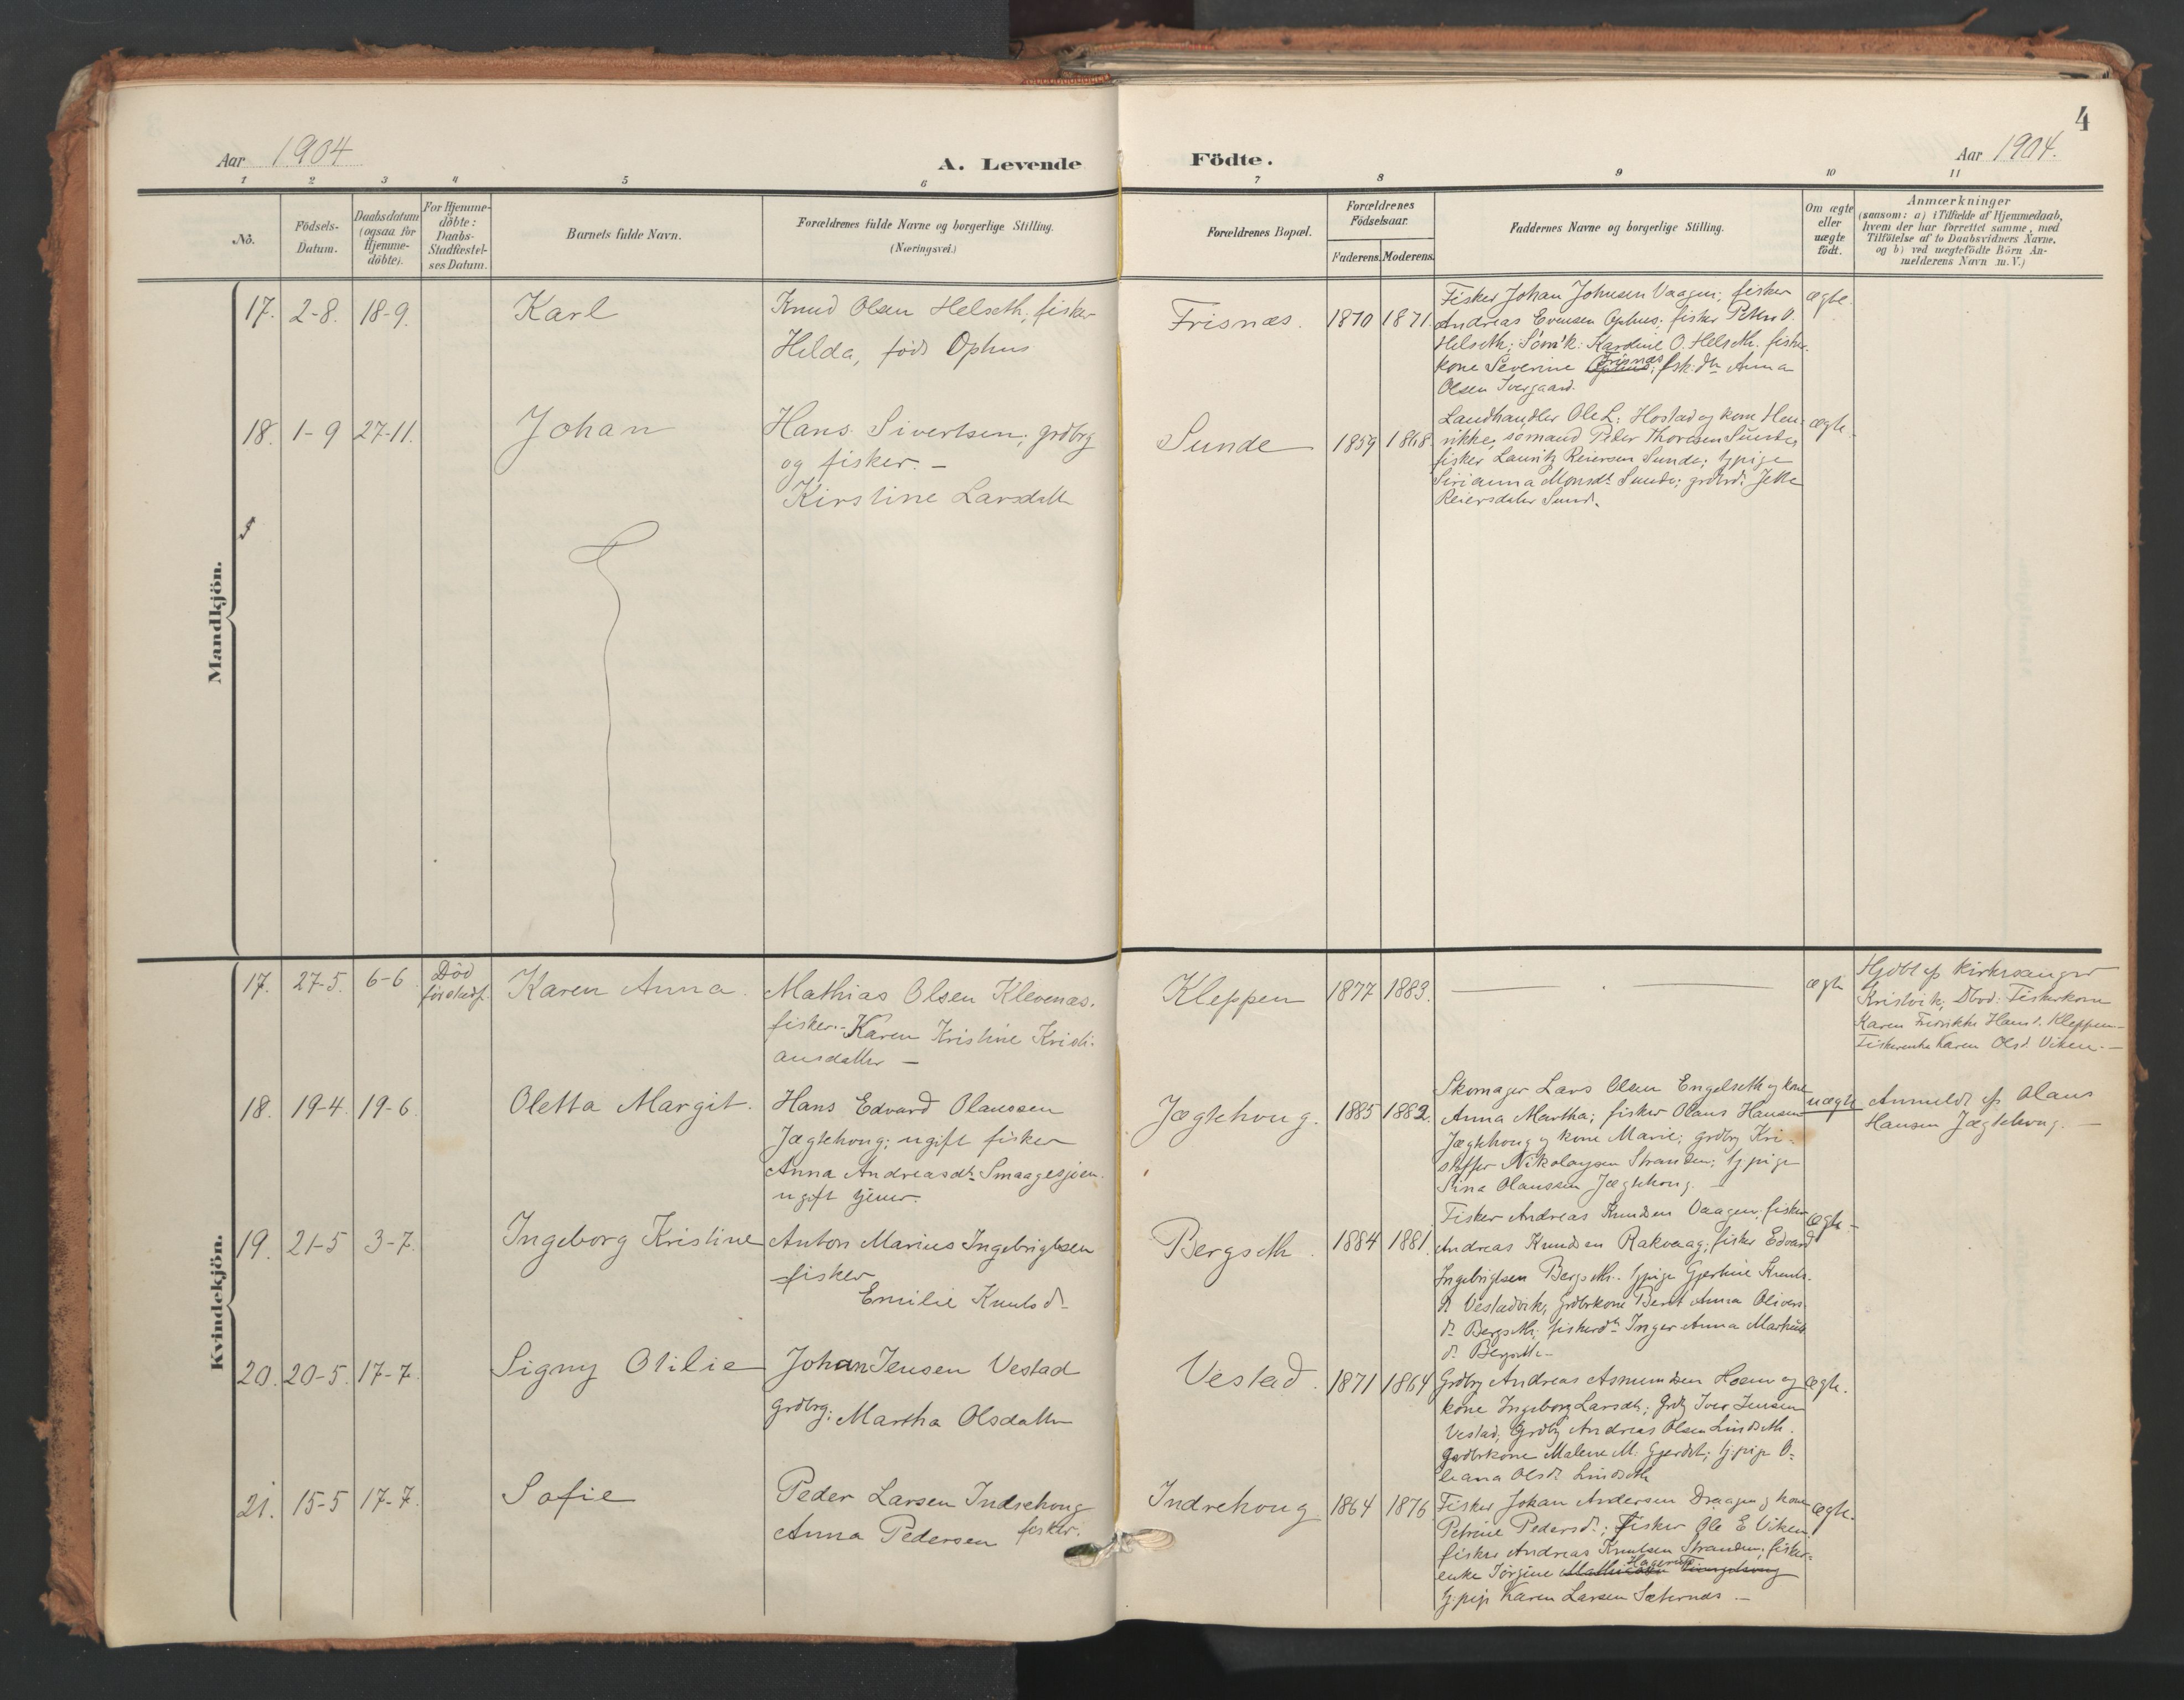 4
Aar 1904
A. Levende
Födte.
Aar 1904.
1 2 3 4 5 6 7 8 9 10 11
No.
Födsels-
Datum.
Daabsdatum
(ogsaa for
Hjemme-
döbte).
For Hjemme-
döbte:
Daabs-
Stadfæstel-
ses Datum.
Barnets fulde Navn.
Forældrenes fulde Navne og borgerlige Stilling.
(Næringsvei.)
Forældrenes Bopæl.
Forældrenes
Födselsaar.
Faderens.
Moderens.
Faddernes Navne og borgerlige Stilling.
Om ægte
eller
uægte
födt.
Anmærkninger
(saasom: a) i Tilfælde af Hjemmedaab,
hvem der har forrettet samme, med
Tilföielse af to Daabsvidners Navne,
og b) ved uægtefödte Börn An-
melderens Navn m. V.)
Mandkjön.
17. 2-8. 18-9.
Karl
Knud Olsen Helseth, fisker
Helda, född Ophus
Frisnæs. 1870 1871.
Fisker Johan Johnsen Vaagen; fisker
Andreas Evensen Ophus; fisker Peter O.
Helseth; Karoline O. Helseth. fisker-
kone Severine Ophus Frisnæs; Anna
Olsen Ivergaard.
ægte.
18. 1-9 27-11.
Johan
Hans Sivertsen, grdbrg
og fisker. -
Kirstine Larsdatt
Sunde 1859 1868.
Landhandler Ole L. Hostad og kone Hen-
rikke, sømand Peder Thoresen
fisker Lauritz Reiersen Sunde; tjpige
Sirianna Monsdt Sunde; Jette
Reiersdatter Sund.
ægte.
Kvindekjön.
17. 27-5. 6-6
Död
för stadf.
Karen Anna.
Mathias Olsen Klevenæs.
fisker. - Karen Kristine Kristi-
ansdatter -
Kleppen 1877 1883.
ægte
Hjdbt af kirkesanger
Kristvik; Dbvd: Fiskerkone
Karen Fredrikke Hansd. Kleppen -
Fiskerenke Karen Olsd. Viken. -
18. 19-4. 19-6.
Oletta Margit.
Hans Edvard Olaussen
Jægtehoug; ugift fisker
Anna Andreasdt Smaagesjøen.
ugift tjener.
Jægtehoug. 1885 1882.
Skomager Lars Olsen Engelseth og kone
Anna Martha; fisker Olaus Hansen
Jægtehoug og kone Marie; grdbrg Kri-
stoffer Nikolaysen Stranden; tjpige
Sina Olaussen Jægtehoug.
uægte
Anmeldt af Olaus
Hansen Jægtehoug. -
19. 21-5 3-7.
Ingeborg Kristine
Anton Marius Ingebrigtsen
fisker
Emilie Knutsd.
Bergseth. 1884 1881.
Fisker Andreas Knudsen Vaagen; fisker
Andreas Knudsen Rakvaag; fisker Edvard
Ingebrigtsen Bergseth. tjpige Gjertine Knuts-
dt Vestadvik; grdbrkone Berit Anna Olivers-
dt Bergseth; Inger Anna
dt. Bergseth -
ægte -
20. 20-5. 17-7.
Signy Otilie
Johan Jensen Vestad
grdbrg; Martha Olsdatter
Vestad. 1871 1864
Grdbrg Andreas Asmundsen Hoem og
kone Ingeborg Larsdt; Grdbrg Iver Jensen
Vestad; Grdbrg Andreas Olsen Lindseth.
gardbrkone Malene M. Gjerdet; tjpige O-
leana Olsdt Lindseth
ægte.
21. 15-5 17-7.
Sofie
Peder Larsen Indrehoug
Anna Pedersen fisker.
Indrehoug 1864 1876
Fisker Johan Andersen Draagen og kone
Petrine Pedersd.; Fisker Ole E Viken.
fisker Andreas Knutsen Stranden; fisker-
enke Jörgine
tjpige Karen Larsen Sæternes -
ægte.